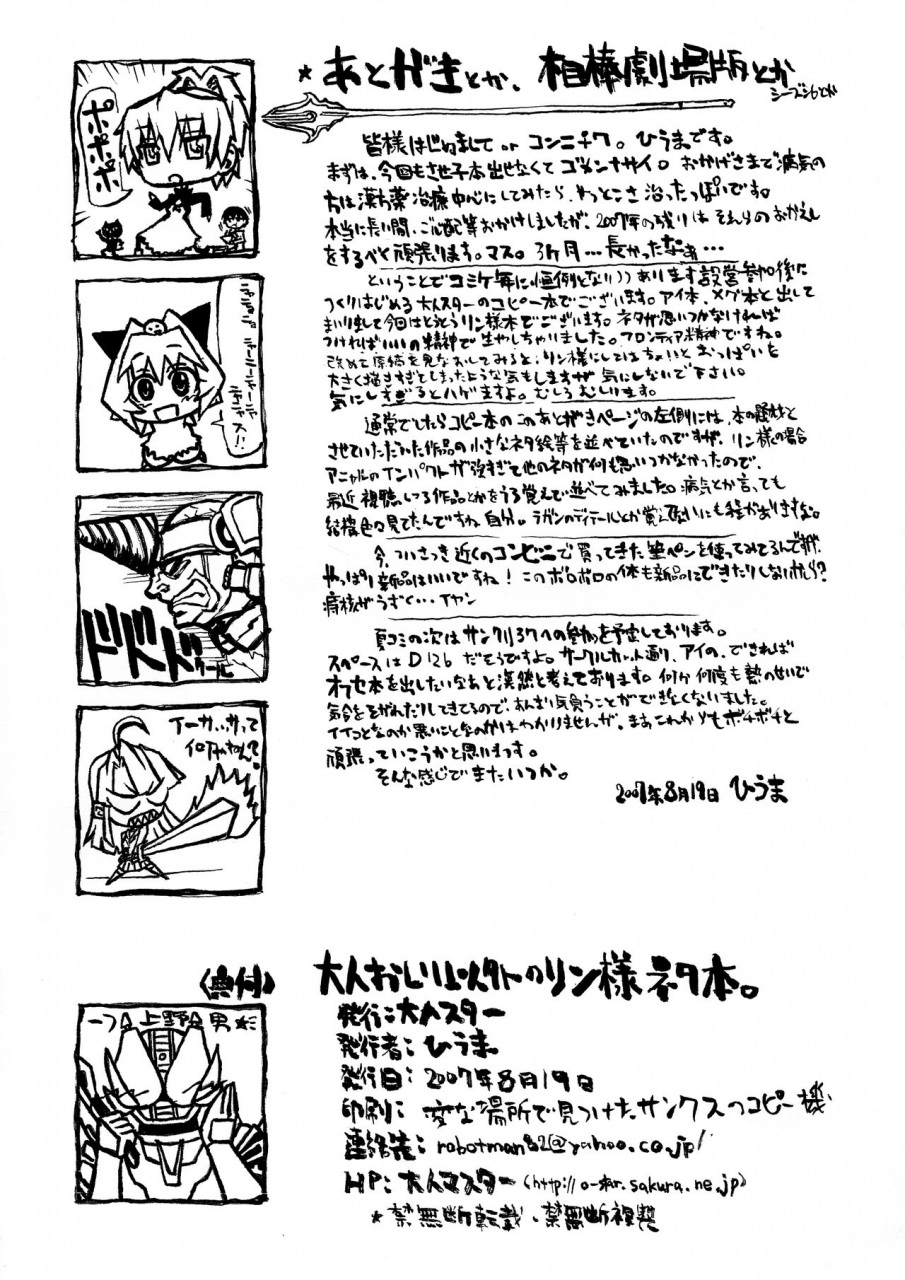 ★あとがきとか、相棒劇場版とか
シーズン6とか
皆様はじめまして or コンニチワ。ひうまです。
まずは、今回もさせ子本出せなくてゴメンナサイ。おかげさまで病気の
方は漢方薬治療中心にしてみたら、やっとこさ治ったっぽいです。
本当に長い間、ご心配等おかけしましたが、2007年の残りはそれらのおかえし
をするべと頑張ります。マス。3ヶ月…長かったなぁ…
ということでコミケ毎に恒例となりつつあります設営参加後に
つくりはじめる大人スターのコピー本でございます。アイ本、メグ本と出して
まいりまして今回はとうとうリン様本でございます。ネタが思いつかなければ
つければいいの精神で生やしちゃいました。フロンティア精神ですね。
改めて原稿を見なおしてみると、リン様にしてはちょいとおっぱいを
大きく描きすぎてしまったような気もしますが気にしないで下さい。
気にしすぎるとハゲますよ。むしろむしります。
通常でしたらコピー本のこのあとがきページの左側には、本の題材と
させていただいた作品の小さなネタ絵等を並べていたのですが、リン様の場合
アニャルのインパクトが強すぎて他のネタが何も思いつかなかったので、
最近視聴してる作品とかをうろ覚えで並べてみました。病気とか言っても
結構色々見てたんですね、自分。ラガンのディテールとか覚えて無いにも程がありますな。
今、ついさっき近くのコンビニで買ってきた筆ペンを使ってみてるんですが、
やっぱり新品はいいですね！このボロボロの体も新品にできたりしないかしら？
痔核がうずく…イヤン
夏コミの次はサンクリ37への参加を予定しております。
スペースはD12bだそうですよ。サークルカット通り、アイの、できれば
オフセ本を出したいなあと漠然と考えております。何か何度も熱のせいで
気合をそがれたりしてきてるので、あんまり気負うことができなくなりました。
イイことなのか悪いことなのかはわかりませんが、まあこれからもボチボチと
頑張っていこうかと思います。
そんな感じでまたいつか。
2007年8月19日 ひうま
ポポポポ
ニャーニャーニャー
ドドド
ドリール
イーサ、サって
何やねん？
〈奥付〉
上野 男
大人おしり以外のリン様ネタ本。
発行：大人スター
発行者：ひうま
発行日：2007年8月19日
印刷：変な場所で見つけたサンクスのコピー機
連絡先：robotman82@yahoo.co.jp
HP：大人マスター
★禁無断転載、禁無断複製